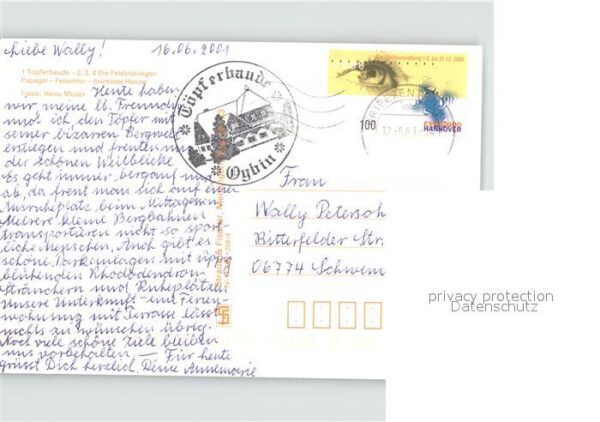 Liebe Wally! 16.06.2001
1 Töpferbaude - 2, 3, 4 Die Felsbildungen
Papagei - Felsentor - brütende Henne
Fotos: Heinz Müller
Heute haben
wir, meine lb. Freundin
und ich, den Töpfer mit
seiner bizarren Bergwelt
erstiegen und freuten uns
der schönen Weitblicke
Es geht immer bergauf und
ab, da freut man sich auf einen
Ausruheplatz beim Mittagessen.
Mehrere kleine Bergbahnen
transportieren nicht so sport-
liche Menschen. Auch gibt es
schöne Parkanlagen mit üppig
blühenden Rhododendron-
sträuchern und Ruheplätzen
Unsere Unterkunft - eine Ferien-
wohnung mit Terrasse lässt
nichts zu wünschen übrig.
Noch viele schöne Ziele bleiben
uns vorbehalten. — Für heute
grüsst Dich herzlich Deine Annemarie
Töpferbaude
Oybin
Die Weltausstellung 1.6. bis 31.10.2000
100
EXPO2000
HANNOVER
Frau
Wally Petersoh
Bitterfelder Str.
06774 Schwem
privacy protection
Datenschutz